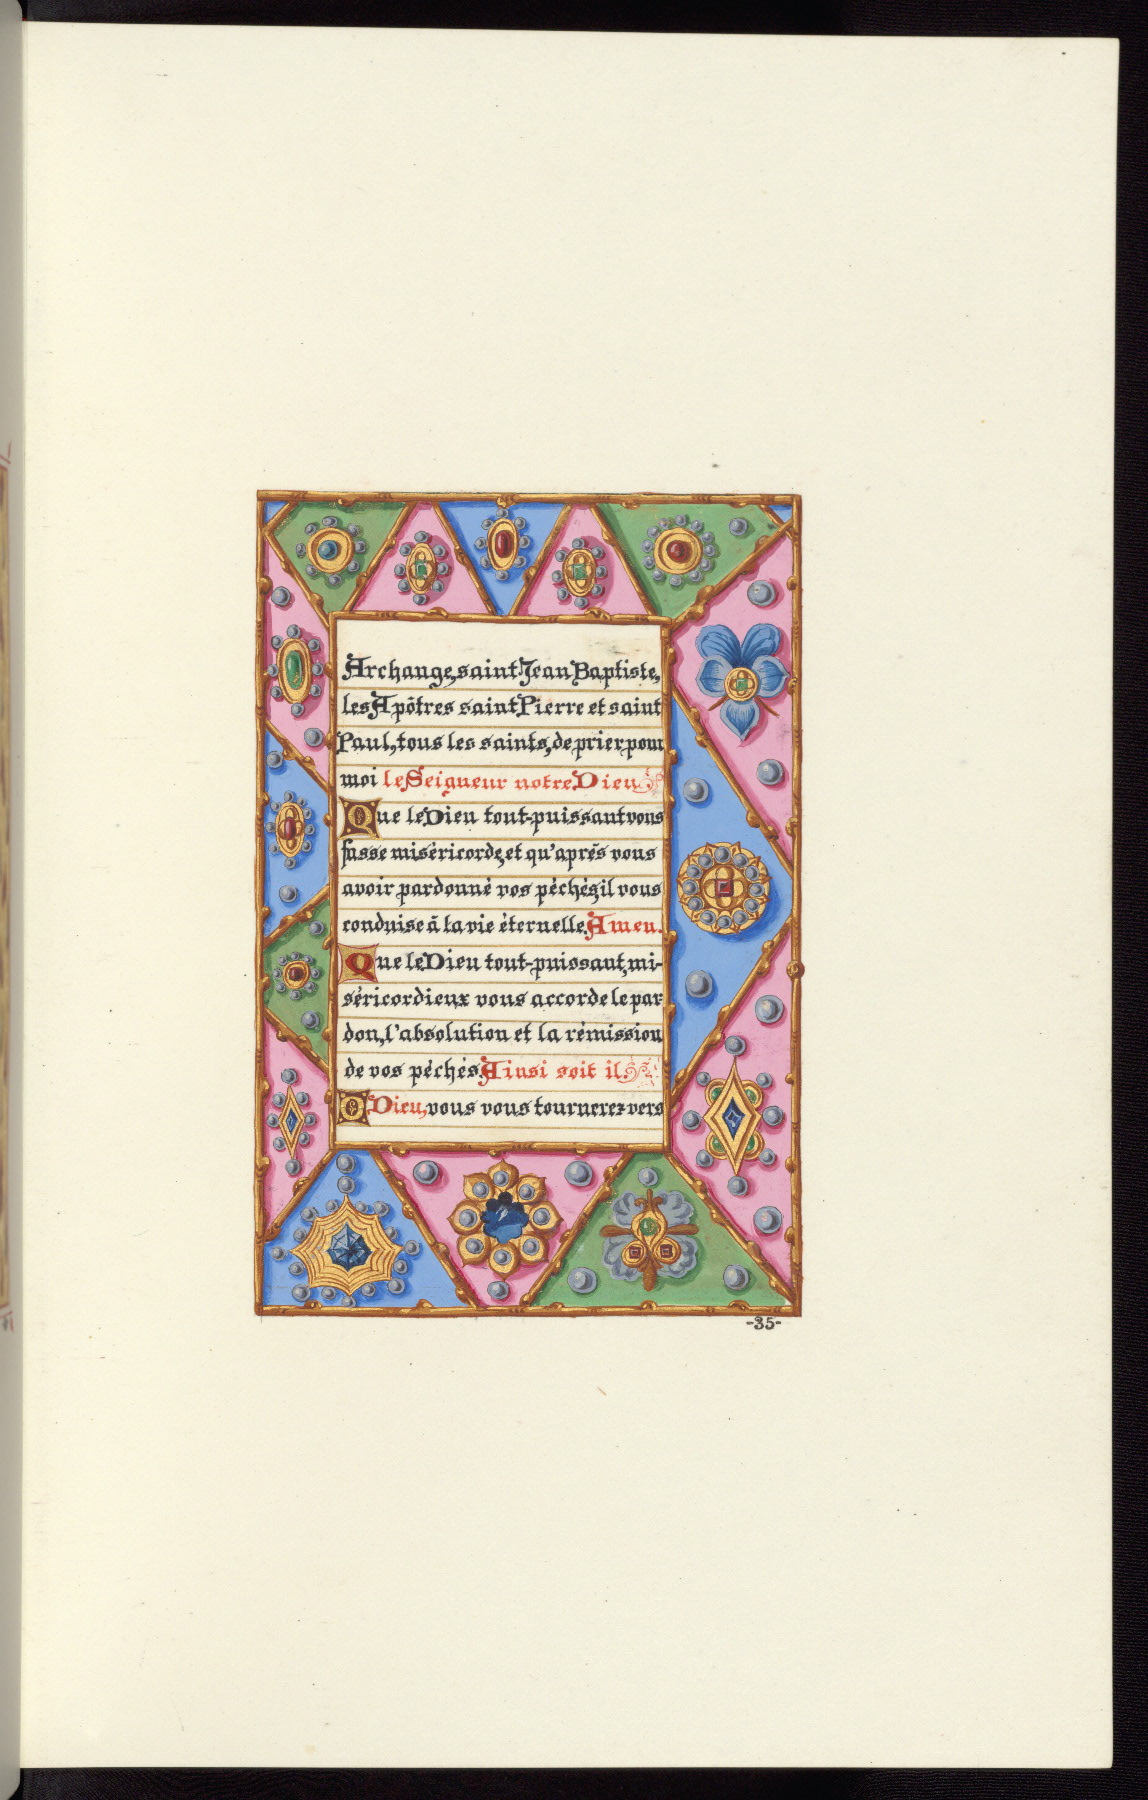 Archange, saint Jean Baptiste,
les Apôtres saint Pierre et saint
Paul, tous les saints, de prier pour
moi le Seigneur notre Dieu.
Que le Dieu tout-puissant vous
fasse miséricorde, et qu'aprés vous
avoir pardonné vos péchés, il vous
conduise à la vie éternelle. Amen.
Que le Dieu tout-puissant, mi-
séricordieux vous accorde le par-
don, l'absolution et la rémission
de vos péchés. Ainsi soit il.
O Dieu, vous vous tournerez vers
-35-